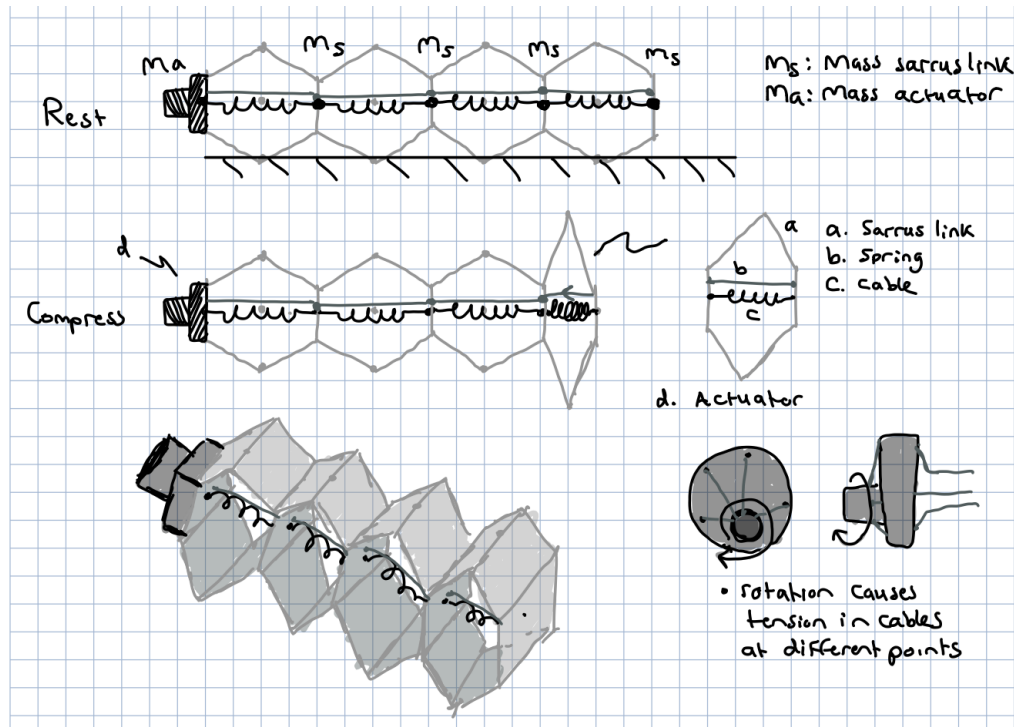 Ma
Ms
Ms
Ms
Ms
Ms: Mass sarrus link
Ma: Mass actuator
Rest
d
Compress
a
b
c
a. Sarrus link
b. Spring
c. cable
d. Actuator
• rotation causes
tension in cables
at different points